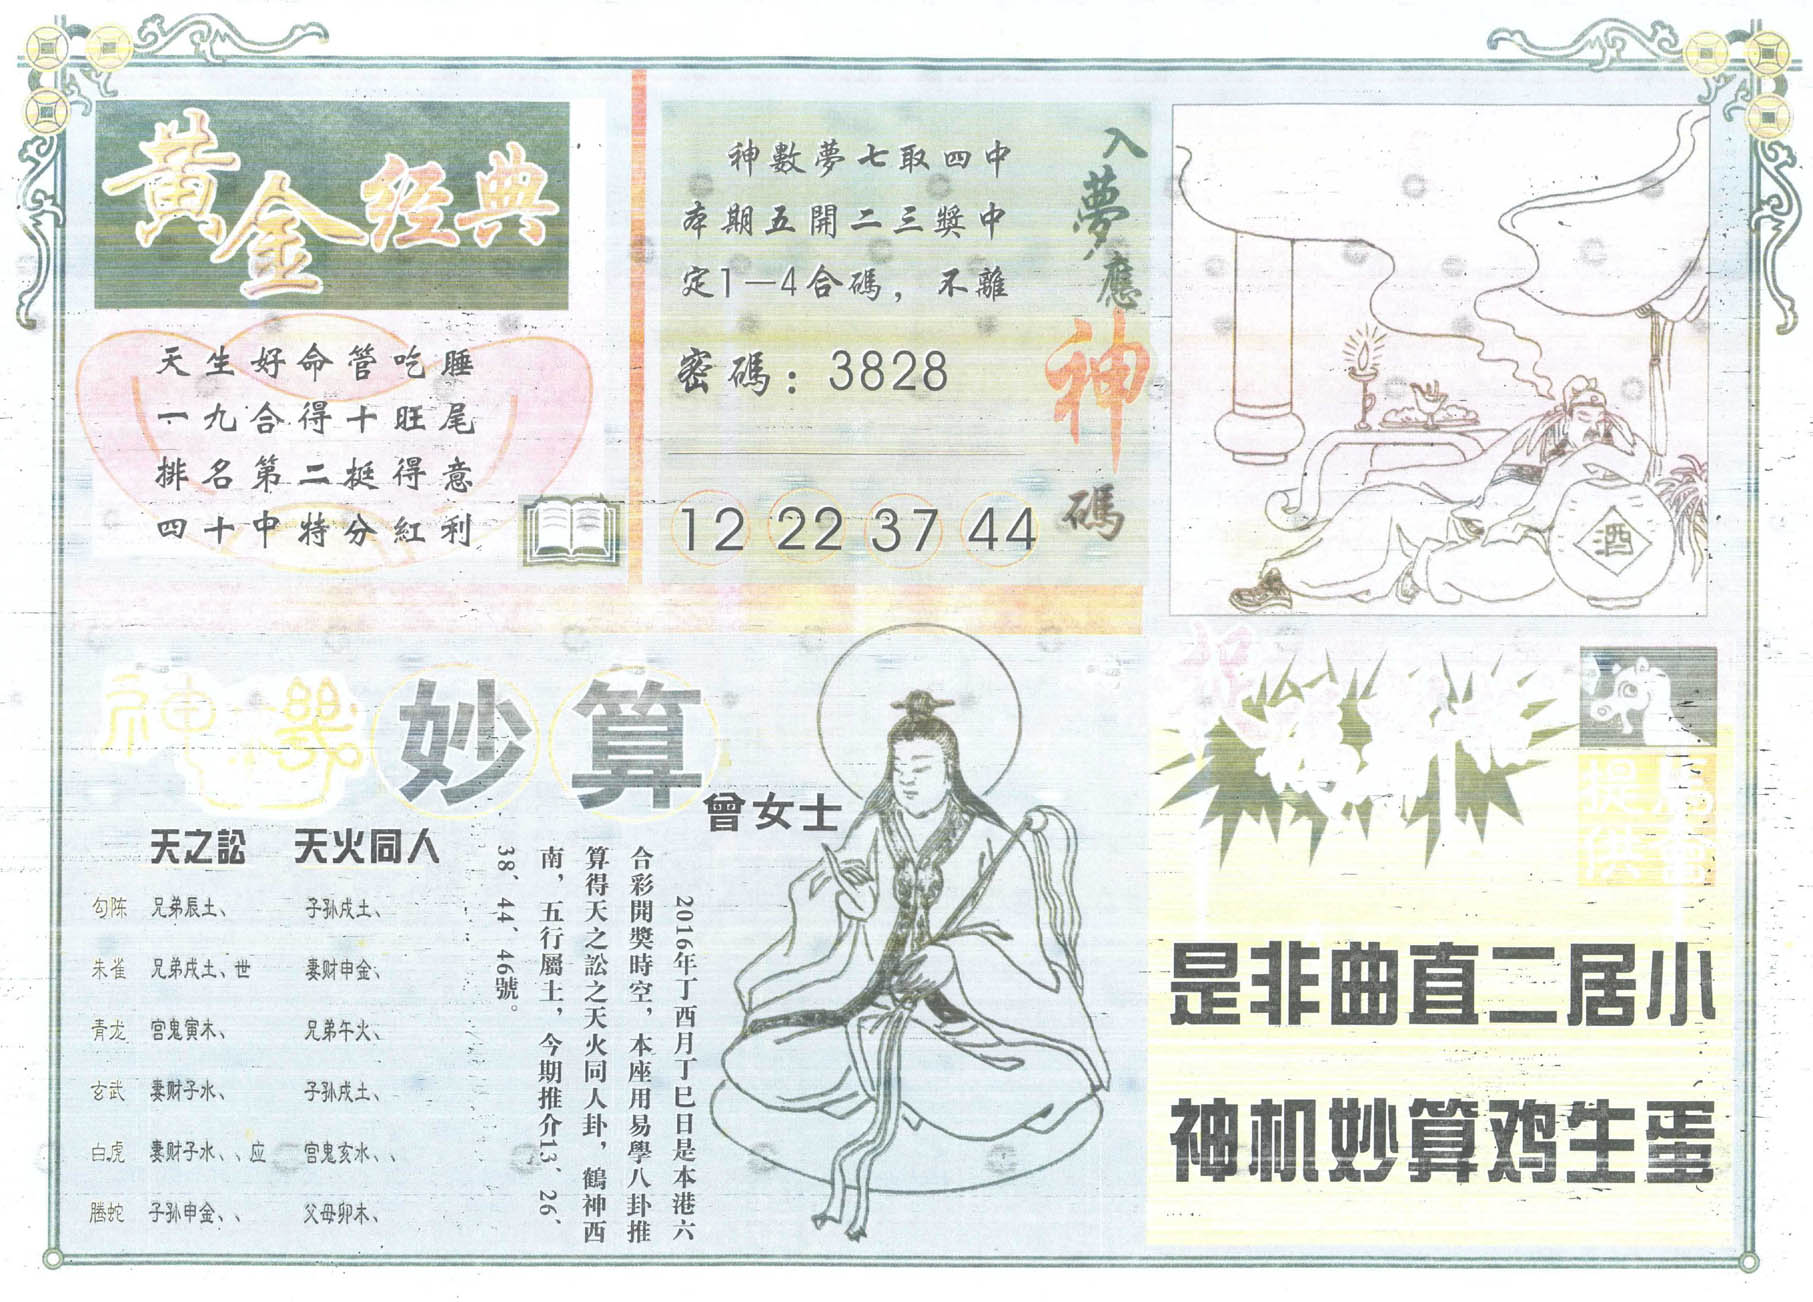 黄金经典
天生好命管吃睡
一九合得十旺尾
排名第二挺得意
四十中特分紅利
神數夢七取四中
本期五開二三獎中
定1—4合碼，不離
密碼：3828
12 22 37 44
入夢應神碼
酒
神器妙算
曾女士
天之訟 天火同人
勾陈 兄弟辰土、 子孙戌土、
朱雀 兄弟戌土、世 妻财申金、
青龙 宫鬼寅木、 兄弟午火、
玄武 妻财子水、 子孙戌土、
白虎 妻财子水、、应 宫鬼亥水、、
腾蛇 子孙申金、、 父母卯木、
2016年丁酉月丁巳日是本港六
合彩開獎時空，本座用易學八卦推
算得天之訟之天火同人卦，鶴神西
南，五行屬土，今期推介13、26、
38、44、46號。
提供
是非曲直二居小
神机妙算鸡生蛋